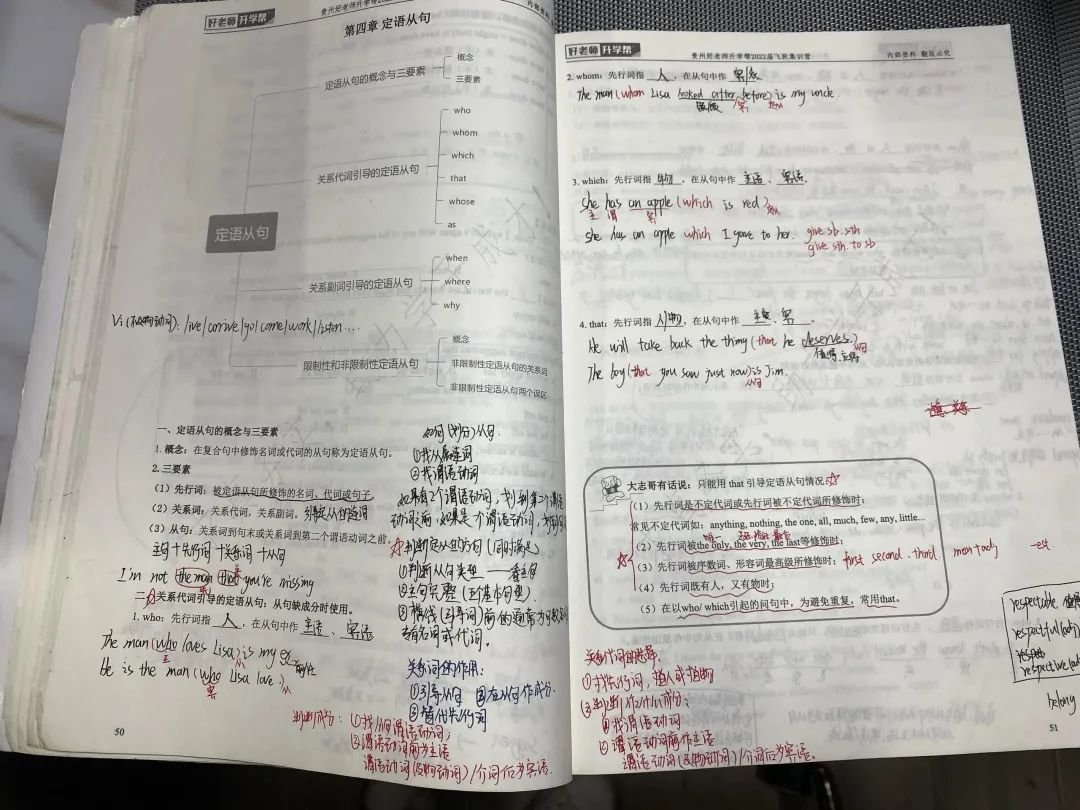 好老师 升学帮
贵州好老师升学帮202
内部资料
第四章 定语从句
定语从句
定语从句的概念与三要素
概念
三要素
关系代词引导的定语从句
who
whom
which
that
whose
as
关系副词引导的定语从句
when
where
why
限制性和非限制性定语从句
概念
非限制性定语从句的关系词
非限制性定语从句两个误区
Vi(不及物动词): live/arrive/go/come/work/listen....
一、定语从句的概念与三要素
1. 概念:在复合句中修饰名词或代词的从句称为定语从句。
2. 三要素
(1)先行词:被定语从句所修饰的名词、代词或句子
(2)关系词:关系代词,关系副词。引导定从的连词
(3)从句:关系词到句末或关系词到第二个谓语动词之前。
主句+先行词+关系词+从句
I'm not the man that you're missing
二、关系代词引导的定语从句:从句缺成分时使用。
1. who:先行词指 人 ,在从句中作 主语 、 宾语
The man (who loves Lisa) is my
主
从
He is the man (who Lisa love.)
宾
从
如何(划分)从句:
①找从属连词
②找谓语动词
如果有2个谓语动词,划到第二个谓语
动词前,如果是一个谓语动词,
判断定从的方向(同时满足)
①判断从句类型——看主句
②主句完整(五大基本句型)
③横线(引导词)前的通常为
名词或代词。
关系词的作用:
①引导从句 ③在从句作成分.
②替代先行词
判断成分:①找从句谓语动词;
②谓语动词前为主语
谓语动词(及物动词)/介词后为宾语.
50
好老师 升学帮
贵州好老师升学帮2022届飞跃集训营
内部资料 翻版必究
2. whom:先行词指 人 ,在从句中作 宾语
The man (whom Lisa looked after before) is my uncle.
宾
3. which:先行词指 物 ,在从句中作 主语 、 宾语 .
She has an apple (which is red.)
主 谓 宾
She has an apple which I gave to her.
give sb. sth
give sth. to sb.
4. that:先行词指 人/物 ,在从句中作 主语 、 宾 .
He will take back the thing (that he deserves.)
从句
The boy (that you saw just now) is Jim.
从句
大志哥有话说:只能用 that 引导定语从句情况
(1)先行词是不定代词或先行词被不定代词所修饰时;
常见不定代词如:anything, nothing, the one, all, much, few, any, little...
(2)先行词被the only, the very, the last等修饰时;
(3)先行词被序数词、形容词最高级所修饰时;
first second third
-est
(4)先行词既有人,又有物时;
(5)在以who/ which引起的问句中,为避免重复,常用that。
关系代词的选择:
①找先行词,指人或指物
②判断作什么成分;
①找谓语动词
②谓语动词前作主语
谓语动词(及物动词)/介词后为宾语。
respectable
respectful
respective
belong
51